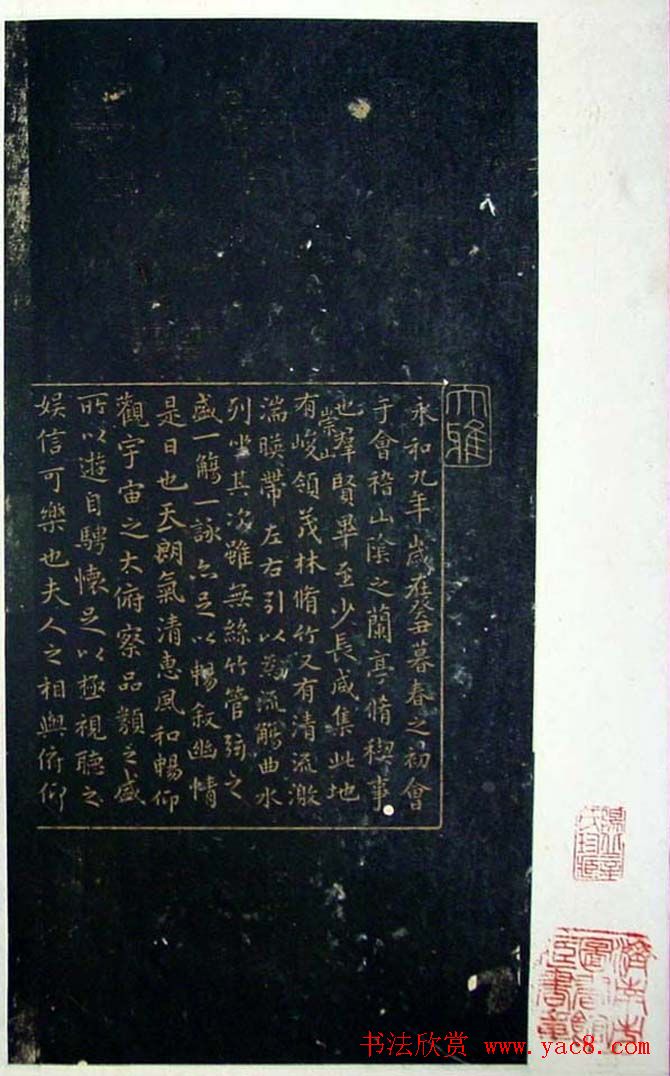 大雅
永和九年歲在癸丑暮春之初會
于會稽山陰之蘭亭脩稧事
也羣賢畢至少長咸集此地
有崇山峻領茂林脩竹又有清流激
湍暎帶左右引以為流觴曲水
列坐其次雖無絲竹管弦之
盛一觴一詠亦足以暢敘幽情
是日也天朗氣清惠風和暢仰
觀宇宙之大俯察品類之盛
所以遊目騁懷足以極視聽之
娱信可樂也夫人之相與俯仰
濟南市圖書館
書法欣赏 www.yac8.com